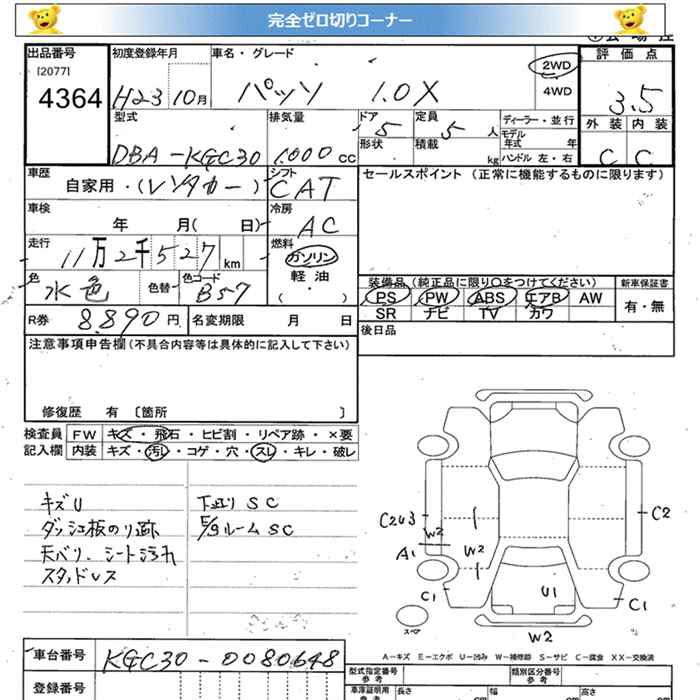 完全ゼロ切りコーナー
出品番号 初度登録年月 車名・グレード 2WD 評価点
[2077]
4364 H23 10月 パッソ 1.0X 4WD 3.5
型式 排気量 ドア 5 定員 5 人 ディーラー・並行 外装 内装
モデル年式 年
DBA-KGC30 1,000 cc 形状 積載 kg ハンドル 左・右 C C
車歴 自家用・(レンタカー) シフト CAT セールスポイント (正常に機能するものに限ります)
車検 年 月( 日) 冷房 AC
走行 11万2千527 km 燃料 ガソリン
軽油
( ・ )
色 水色 色替 色コード B57 装備品 (純正品に限り○をつけてください) 新車保証書
PS PW ABS エアB AW 有・無
SR ナビ TV カワ
R券 8.890円 名変期限 月 日 後日品
注意事項申告欄(不具合内容等は具体的に記入して下さい)
修復歴 有 〔箇所 〕
検査員 FW キズ・飛石・ヒビ割・リペア跡・×要
記入欄 内装 キズ・汚レ・コゲ・穴・スレ・キレ・破レ
キズU 下廻り SC
ダッシュ板のり跡 E/gルームSC
天バリ、シート汚れ
スタッドレス
C2U3 W2 C2
A1 W2
C1 U1 C1
スペア
W2
A−キズ E−エクボ U−凹み W−補修跡 S−サビ C−腐食 XX−交換済
車台番号 KGC30-0080648
型式指定番号 参考 類別区分番号 参考
登録番号 車庫証明用 参考 長さ cm 幅 cm 高さ cm